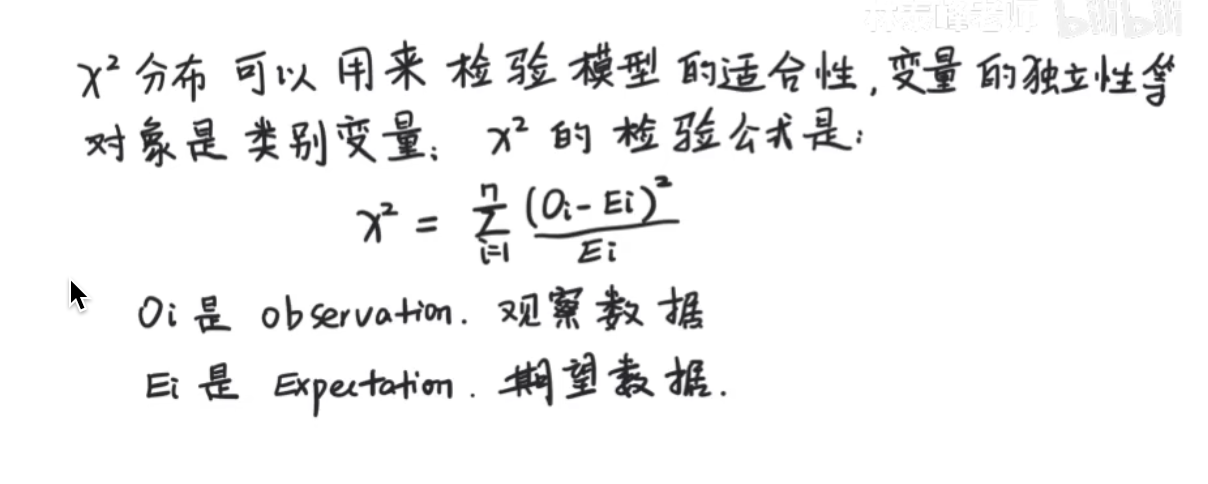 χ² 分布 可以 用来 检验 模型 的适合性,变量 的独立性等
对象是 类别变量; χ² 的 检验公式是:
χ² = Σ_{i=1}^{n} (Oi - Ei)² / Ei
Oi 是 observation. 观察数据
Ei 是 Expectation. 期望数据.